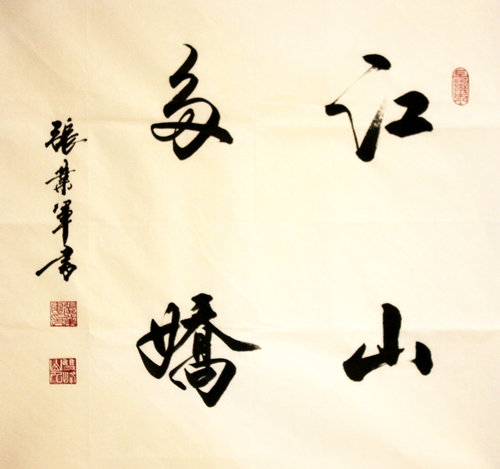 江山
多嬌
張業軍書